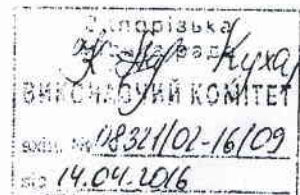 Запорізька
міська рада
ВИКОНАВЧИЙ КОМІТЕТ
вхід. № 18321/02-16/09
від 14.04.2016